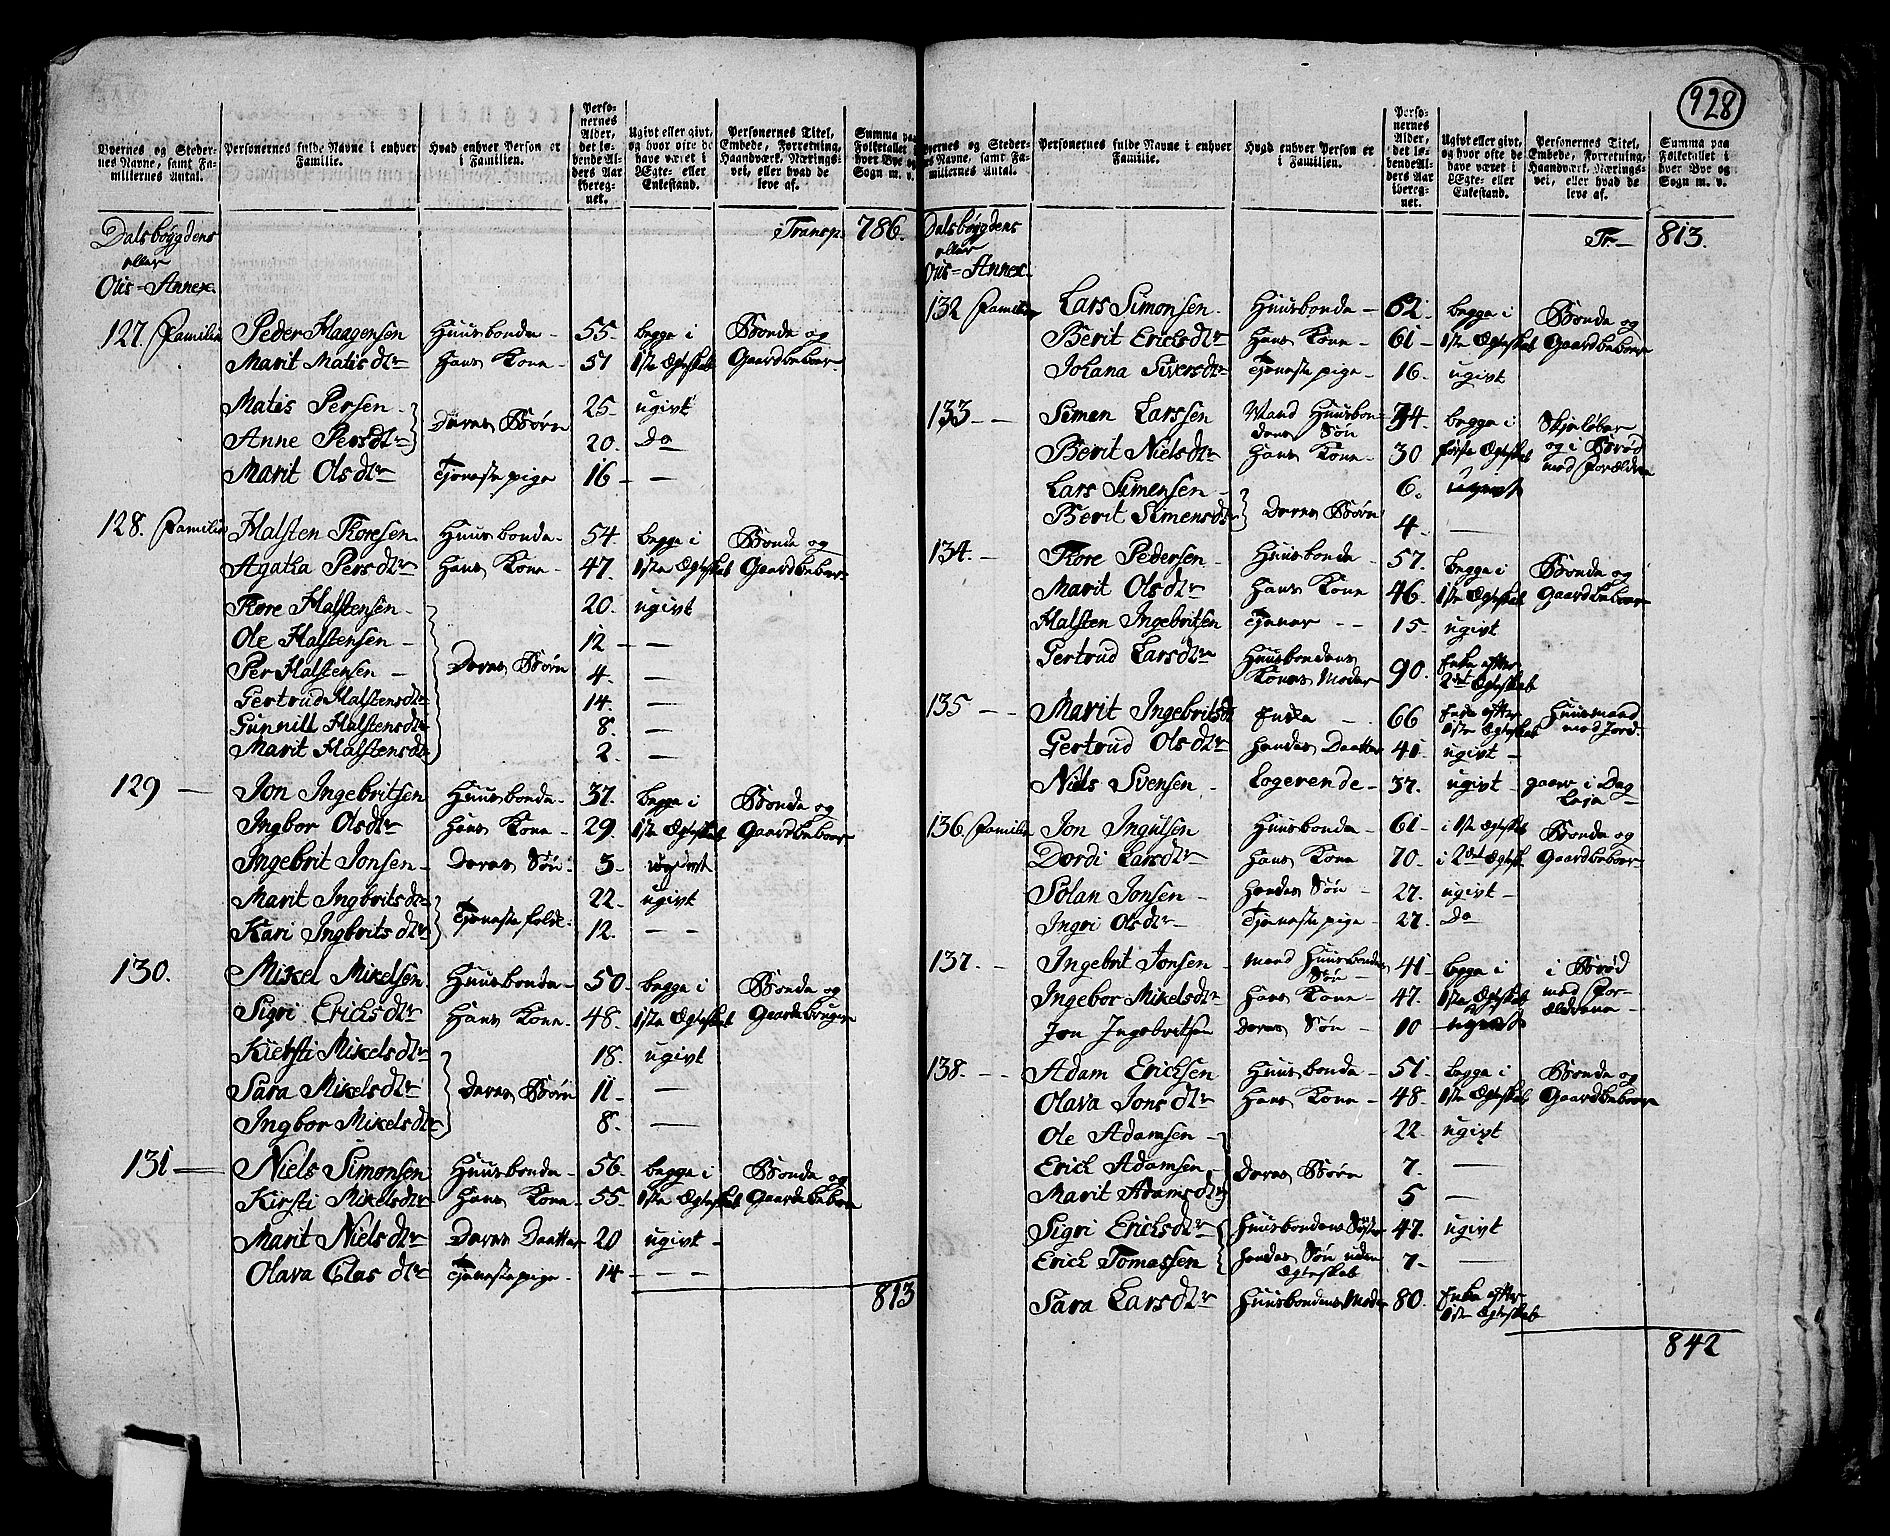 928
Byernes og Steder-
nes Navne, samt Fa-
miliernes Antal.
Personernes fulde Navne i enhver
Familie.
Hvad enhver Person er
i Familien.
Perso-
nernes
Alder,
det lø-
bende Al-
ders Aar
iberegnet.
Ugivt eller givt,
og hvor ofte de
have været i
Ægte- eller
Enkestand.
Personernes Titel,
Embede, Forretning,
Haandværk, Nærings-
vei, eller hvad de
leve af.
Summa paa
Folketallet i
hver Bye og
Sogn m. v.
Dalsbøygdens
eller
Ous=Annex.
Transp. 786.
127. Familie Peder Haagensen Huusbonde - 55. begge i Bonde og
Marit Matisdtr Hans Kone - 51 1ste Egteskab Gaardbeboer
Matis Persen - Deres Børn 25 ugivt
Anne Persdtr 20. Do
Marit Olsdtr Tjenestepige 16 - —
128. Familie Halsten Toresen Huusbonde - 54. begge i Bonde og
Agatha Persdtr Hans Kone - 47. 1ste Egteskab Gaardbeboer
Tore Halstensen - 20. ugivt
Ole Halstensen - 12 - —
Per Halstensen - Deres Børn 4. —
Gertrud Halstensdtr 14. —
Gunnill Halstensdtr 8. —
Marit Halstensdtr 2. —
129 — Jon Ingebritsen Huusbonde - 37. begge i Bonde og
Ingbor Olsdtr Hans Kone - 29. 1ste Egteskab Gaardbeboer
Ingebrit Jonsen - Deres Søn 3 - ugivt
Marit Ingbritsdtr 22. ugivt
Kari Ingbritsdtr Tjenestefolk: 12. — —
130. Mikel Mikelsen Huusbonde - 50. begge i Bonde og
Sigri Erichsdtr Hans Kone - 48. 1ste Egteskab Gaardbruger
Kiersti Mikelsdtr 18. ugivt
Sara Mikelsdtr Deres Børn 11 - —
Ingbor Mikelsdtr 8. —
131 — Niels Simonsen Huusbonde - 56. begge i Bonde og
Kirsti Mikelsdtr Hans Kone - 55. 1ste Egteskab Gaardbeboer
Marit Nielsdtr Deres Daatter 20 ugivt -
Olava Olasdtr Tjenestepige - 14 - — -
813
Byernes og Steder-
nes Navne, samt Fa-
miliernes Antal.
Personernes fulde Navne i enhver
Familie.
Hvad enhver Person er
i Familien.
Perso-
nernes
Alder,
det lø-
bende Al-
ders Aar
ibereg-
net.
Ugivt eller givt,
og hvor ofte de
have været i
Ægte- eller
Enkestand.
Personernes Titel,
Embede, Forretning,
Haandværk, Nærings-
vei, eller hvad de
leve af.
Summa paa
Folketallet i
hver Bye og
Sogn m. v.
Dalsbøygdens
eller
Ous=Annex.
Tr— 813.
132 Familie Lars Simonsen - Huusbonde - 62. begge i Bonde og
Berit Erichsdtr Hans Kone - 61 - 1ste Egteskab Gaardbeboer
Johana Siversdtr Tjenestepige - 16. ugivt
133 - - Simen Larssen Mand Huusbon- 34. begge i Skjeløber
dens Søn og i Brød
Berit Nielsdtr Hans Kone - 30 første Egteskab med Forældrene
Lars Simensen - 6. ugivt
Berit Simensdtr Deres Børn 4. —
134. - Tore Pedersen - Huusbonde - 57. begge i Bonde og
Marit Olsdtr Hans Kone 46. 1ste Egteskab Gaardbeboer
Halsten Ingebritsen Tjener - - 15. ugivt
Gertrud Larsdtr Huusbondens
Kones Moder 90. Enke efter
2det Egteskab
135 - - Marit Ingebritsdtr Enke - 66 Enke efter Huusmand
1ste Egteskab med Jord.
Gertrud Olsdtr Hendes Daatter 41 ugivt -
Niels Svensen - Logerende - 37. ugivt - gaaer i Dag
Leje -
136. Familie Jon Ingulsen Huusbonde - 61 - i 1ste Egteskab Bonde og
Dordi Larsdtr Hans Kone 70. i 2det Egtesk. Gaardbeboer
Solan Jonsen - Hendes Søn - 27. ugivt -
Ingri Olsdtr - Tjenestepige - 27. Do
137. - Ingebrit Jonsen - Mand Huusbondens 41 - begge i i Brød
Søn - med For-
Ingebor Mikelsdtr Hans Kone - 47. 1ste Egteskab ældrene -
Jon Ingebritsen Deres Søn - 10 - ugivt
138. - - Adam Erichsen Huusbonde - 51. begge i Bonde og
Olava Jonsdtr Hans Kone - 48. 1ste Egteskab Gaardbeboer
Ole Adamsen - 22. ugivt
Erich Adamsen Deres Børn 7. —
Marit Adamsdtr 5 —
Sigri Erichsdtr Huusbondens Søster 47. ugivt
Erich Tomassen Hendes Søn uden 7 - —
Egteskab
Sara Larsdtr Huusbondens Moder 80. Enke efter
1ste Egteskab
842